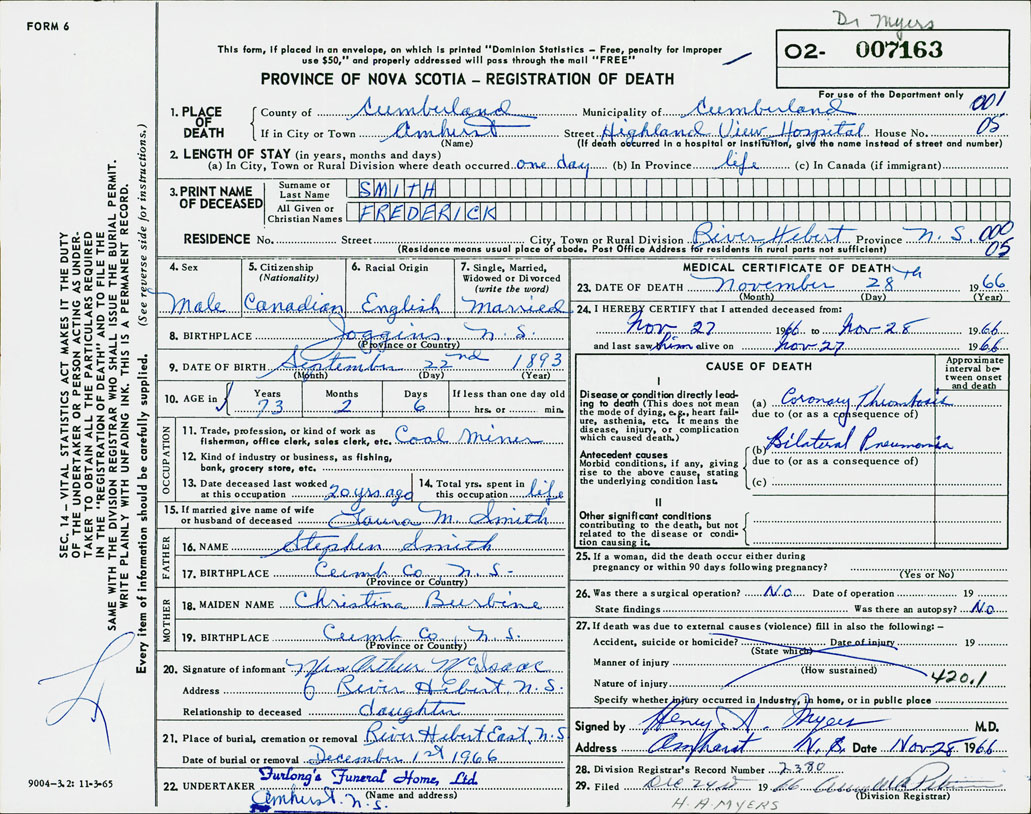 Dr Myers
FORM 6
This form, if placed in an envelope, on which is printed "Dominion Statistics – Free, penalty for improper
use $50," and properly addressed will pass through the mail "FREE"
O2- 007163
PROVINCE OF NOVA SCOTIA – REGISTRATION OF DEATH
For use of the Department only
001
05
1. PLACE OF DEATH
County of Cumberland Municipality of Cumberland
If in City or Town Amherst Street Highland View Hospital House No.
(Name) (If death occurred in a hospital or institution, give the name instead of street and number)
2. LENGTH OF STAY (in years, months and days)
(a) In City, Town or Rural Division where death occurred one day (b) In Province life (c) In Canada (if immigrant)
3. PRINT NAME OF DECEASED
Surname or Last Name SMITH
All Given or Christian Names FREDERICK
RESIDENCE No. Street City, Town or Rural Division River Hebert Province N.S. 000
(Residence means usual place of abode. Post Office Address for residents in rural parts not sufficient) 05
4. Sex
Male
5. Citizenship
(Nationality)
Canadian
6. Racial Origin
English
7. Single, Married,
Widowed or Divorced
(write the word)
Married
8. BIRTHPLACE Joggins, N.S.
(Province or Country)
9. DATE OF BIRTH September 22nd 1893
(Month) (Day) (Year)
10. AGE in
Years Months Days If less than one day old
73 2 6 hrs. or min.
OCCUPATION
11. Trade, profession, or kind of work as
fisherman, office clerk, sales clerk, etc. Coal Miner
12. Kind of industry or business, as fishing,
bank, grocery store, etc.
13. Date deceased last worked
at this occupation 20 yrs ago
14. Total yrs. spent in
this occupation life
15. If married give name of wife
or husband of deceased Laura M. Smith
FATHER
16. NAME Stephen Smith
17. BIRTHPLACE Cumb Co, N.S.
(Province or Country)
MOTHER
18. MAIDEN NAME Christina Burbine
19. BIRTHPLACE Cumb Co, N.S.
(Province or Country)
20. Signature of informant Mrs. Arthur McIsaac
Address River Hebert, N.S.
Relationship to deceased daughter
21. Place of burial, cremation or removal River Hebert East, N.S
Date of burial or removal December 1st 1966
22. UNDERTAKER Furlong's Funeral Home, Ltd.
(Name and address)
Amherst, N.S.
MEDICAL CERTIFICATE OF DEATH
23. DATE OF DEATH November 28th 1966
(Month) (Day) (Year)
24. I HEREBY CERTIFY that I attended deceased from:
Nov 27 1966 to Nov 28 1966
and last saw him alive on Nov 27 1966
CAUSE OF DEATH
Approximate
interval be-
tween onset
and death
I
Disease or condition directly lead-
ing to death (This does not mean
the mode of dying, e.g., heart fail-
ure, asthenia, etc. It means the
disease, injury, or complication
which caused death.)
(a) Coronary Thrombosis
due to (or as a consequence of)
Antecedent causes
Morbid conditions, if any, giving
rise to the above cause, stating
the underlying condition last.
(b) Bilateral Pneumonia
due to (or as a consequence of)
(c)
II
Other significant conditions
contributing to the death, but not
related to the disease or condi-
tion causing it.
25. If a woman, did the death occur either during
pregnancy or within 90 days following pregnancy?
(Yes or No)
26. Was there a surgical operation? No Date of operation 19
State findings Was there an autopsy? No
27. If death was due to external causes (violence) fill in also the following:–
Accident, suicide or homicide? Date of injury 19
(State which)
Manner of injury
(How sustained)
Nature of injury 420.1
Specify whether injury occurred in industry, in home, or in public place
Signed by Henry A. Myers M.D.
Address Amherst N.S. Date Nov 28 1966
28. Division Registrar's Record Number 2380
29. Filed Dec 2nd 1966
(Division Registrar)
H. A MYERS
SEC. 14 – VITAL STATISTICS ACT MAKES IT THE DUTY
OF THE UNDERTAKER OR PERSON ACTING AS UNDER-
TAKER TO OBTAIN ALL THE PARTICULARS REQUIRED
IN THE "REGISTRATION OF DEATH" AND TO FILE THE
SAME WITH THE DIVISION REGISTRAR WHO SHALL ISSUE THE BURIAL PERMIT.
WRITE PLAINLY WITH UNFADING INK. THIS IS A PERMANENT RECORD.
Every item of information should be carefully supplied. (See reverse side for instructions.)
9004-3.2: 11-3-65